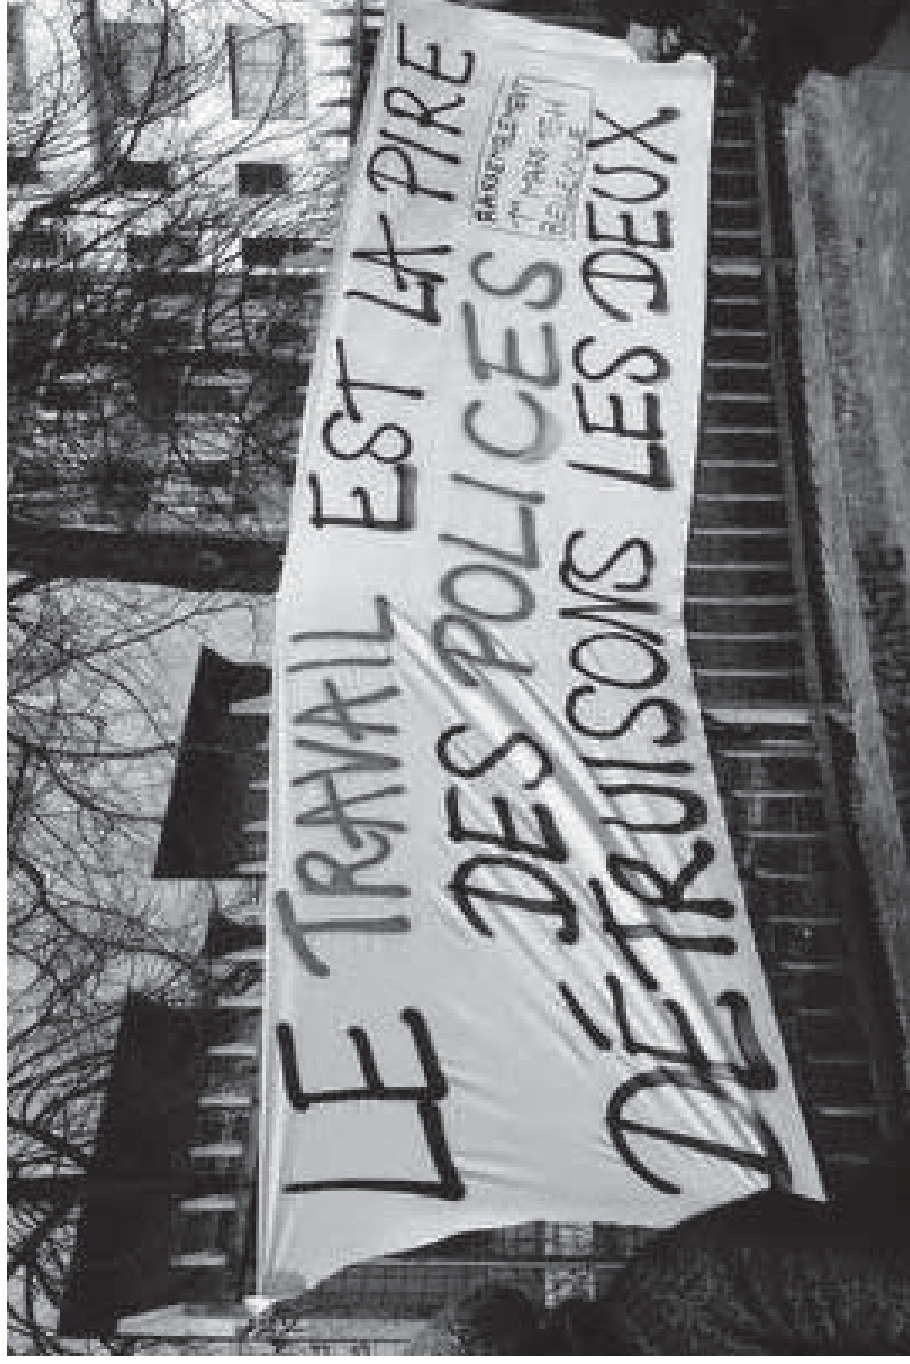 LE TRAVAIL EST LA PIRE
DES POLICES
DÉTRUISONS LES DEUX
1ER MAI 15H